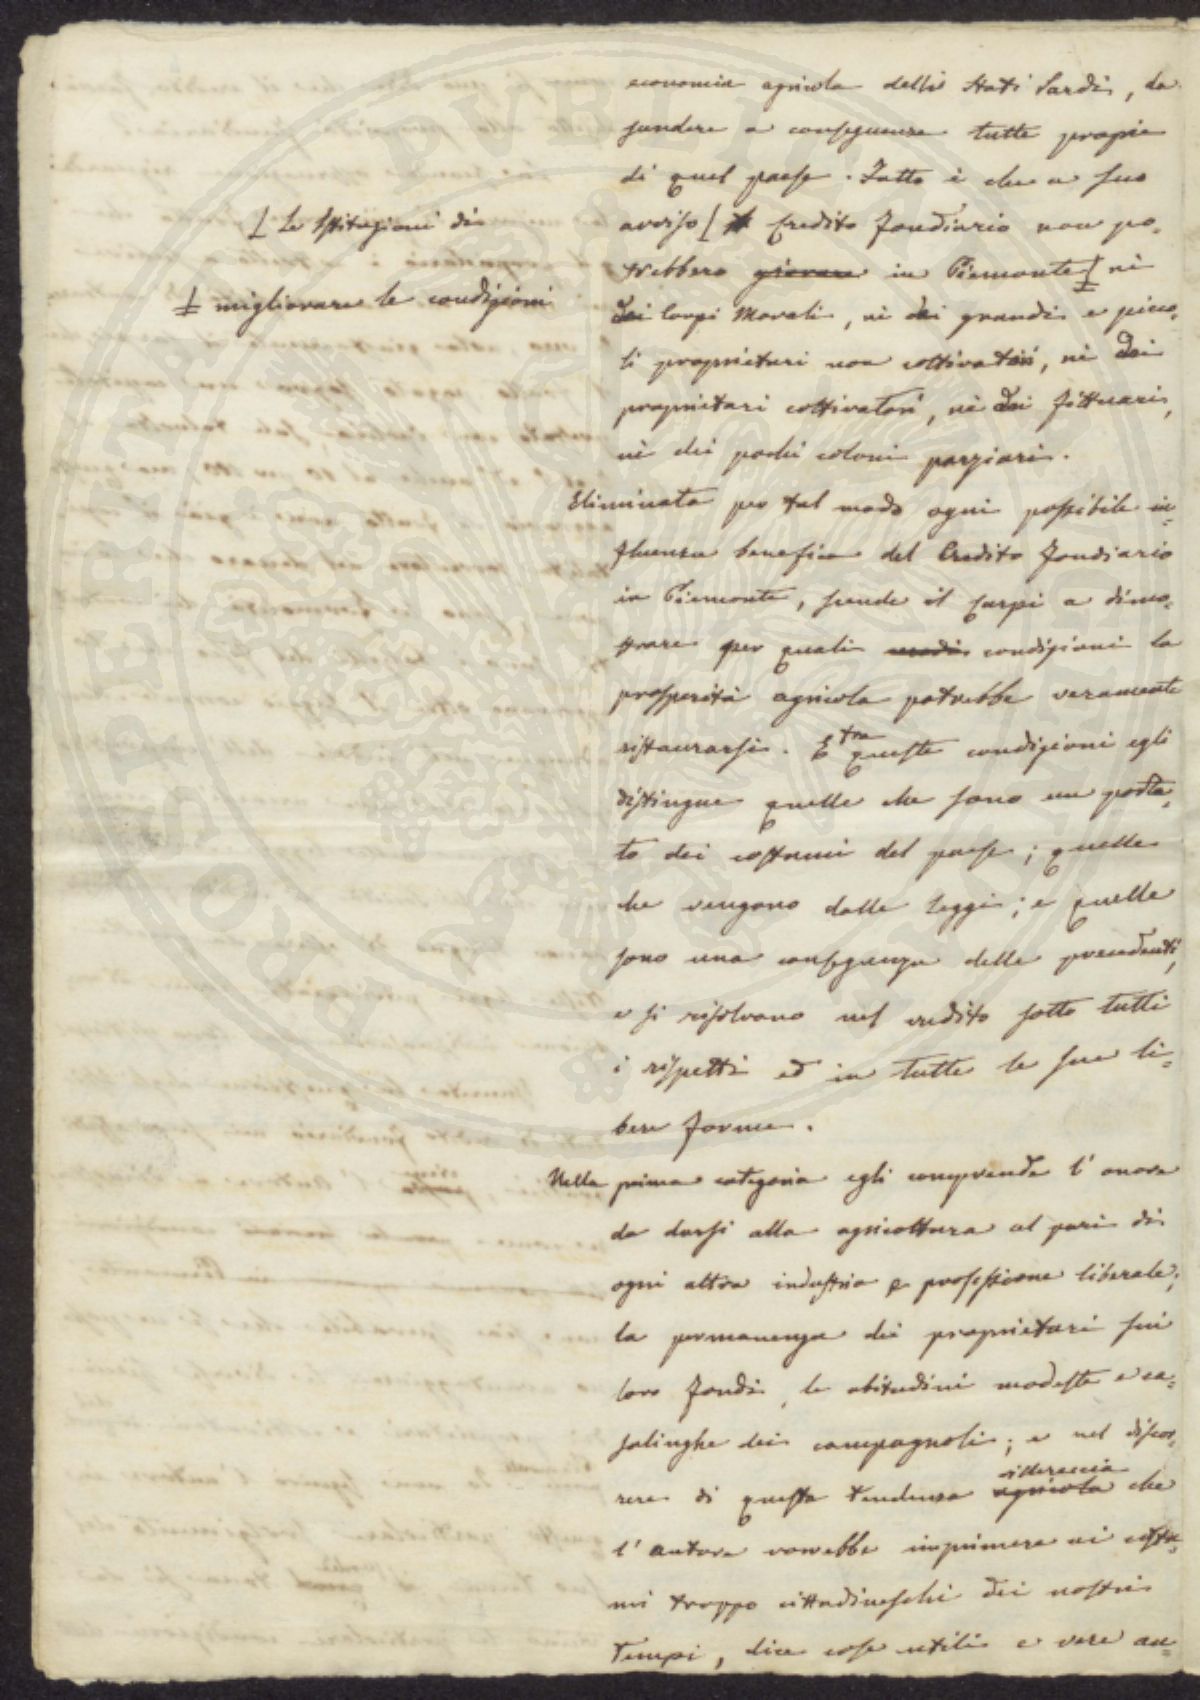 economia agricola delli Stati Sardi, da
fondere a conseguenze tutte proprie
di quel paese. Fatto è che a suo
avviso [ Credito fondiario non po-
[ Le Istituzioni di
trebbero giovare in Piemonte ne
migliorare le condizioni
dei Corpi Morali, nè dei grandi e picco-
li proprietari non coltivatori, nè dei
proprietari coltivatori, nè dei fittuari,
nè dei pochi coloni parziari.
Eliminata per tal modo ogni possibile in-
fluenza benefica del Credito fondiario
in Piemonte, scende il Carpi a dimo-
strare per quali modi condizioni la
prosperità agricola potrebbe veramente
ristaurarsi. E tra queste condizioni egli
distingue quelle che sono un porta-
to dei costumi del paese; quelle
che vengono dalle leggi; e quelle
sono una conseguenza delle precedenti,
e si risolvono nel credito sotto tutti
i rispetti ed in tutte le sue li-
bere forme.
Nella prima categoria egli comprende l'onore
da darsi alla agricoltura al pari di
ogni altra industria e professione liberale;
la permanenza dei proprietari sui
loro fondi, le abitudini modeste e ca-
salinghe dei campagnoli; e nel discor-
rere di questa tendenza agricola villereccia che
l'autore vorrebbe imprimere ai costu-
mi troppo cittadineschi dei nostri
tempi, dice cose utili e vere an-